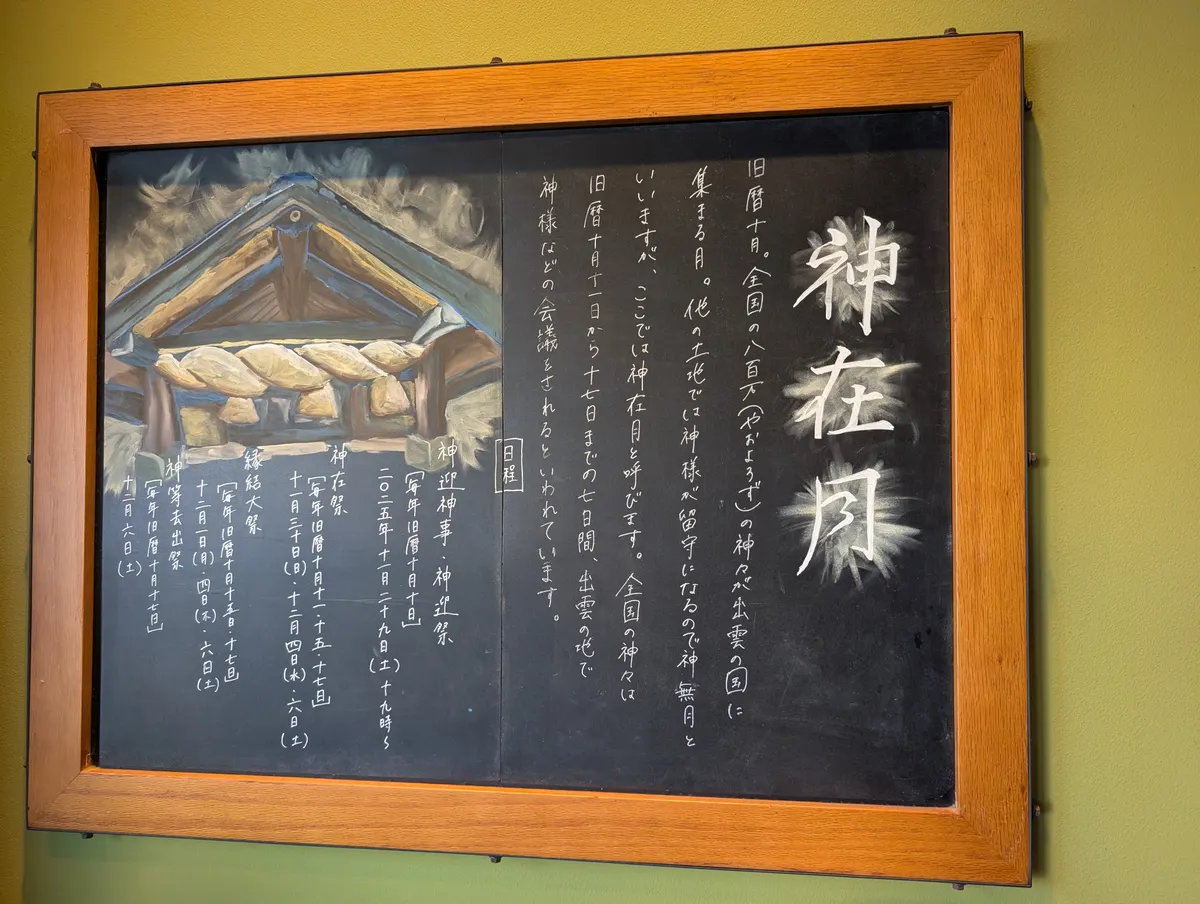 神在月
旧暦十月。全国の八百万(やおよろず)の神々が出雲の国に
集まる月。他の土地では神様が留守になるので神無月と
いいますが、ここでは神在月と呼びます。全国の神々は
旧暦十月十一日から十七日までの七日間、出雲の地で
神様などの会議をされるといわれています。
日程
神迎神事・神迎祭
[毎年旧暦十月十日]
二〇二五年十一月二十九日(土)十九時〜
神在祭
[毎年旧暦十月十一十五十七日]
十一月三十日(日)・十二月四日(木)・六日(土)
縁結大祭
[毎年旧暦十月十五日・十七日]
十二月一日(月)・四日(木)・六日(土)
神等去出祭
[毎年旧暦十月十七日]
十二月六日(土)